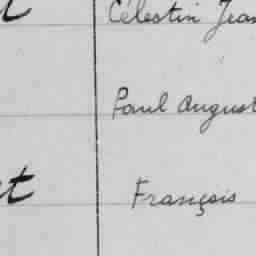 Célestin Jean
Paul August
François